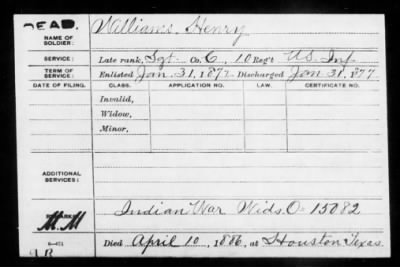 DEAD.
NAME OF SOLDIER: Williams, Henry
SERVICE: Late rank, Sgt. Co. C, 10 Reg't U.S. Inf
TERM OF SERVICE: Enlisted Jan. 31, 1872 Discharged Jan 31, 1877
DATE OF FILING. CLASS. APPLICATION NO. LAW. CERTIFICATE NO.
Invalid,
Widow,
Minor,
ADDITIONAL SERVICES:
M.M Indian War Wids. O- 15082
Died April 10, 1886, at Houston Texas